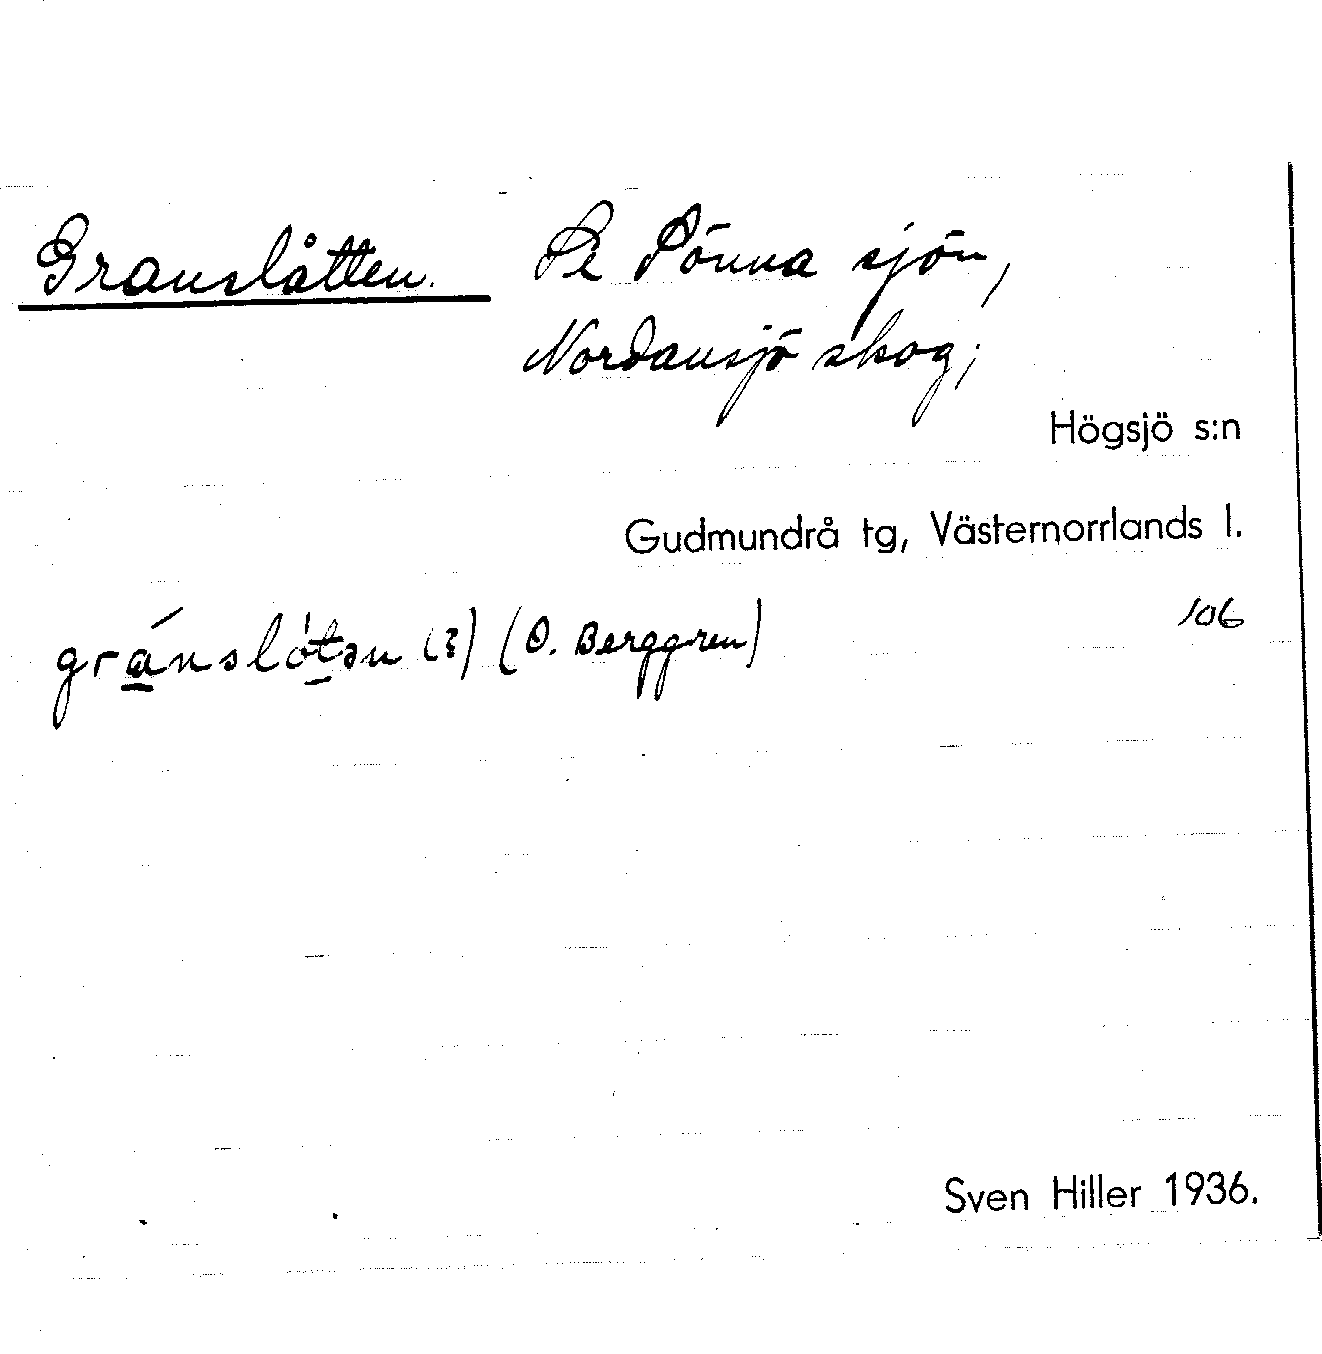 Granslåtten. Pe Pönna sjön,
Nordansjö skog;
Högsjö s:n
Gudmundrå tg, Västernorrlands l.
106
(O. Berggren)
Sven Hiller 1936.